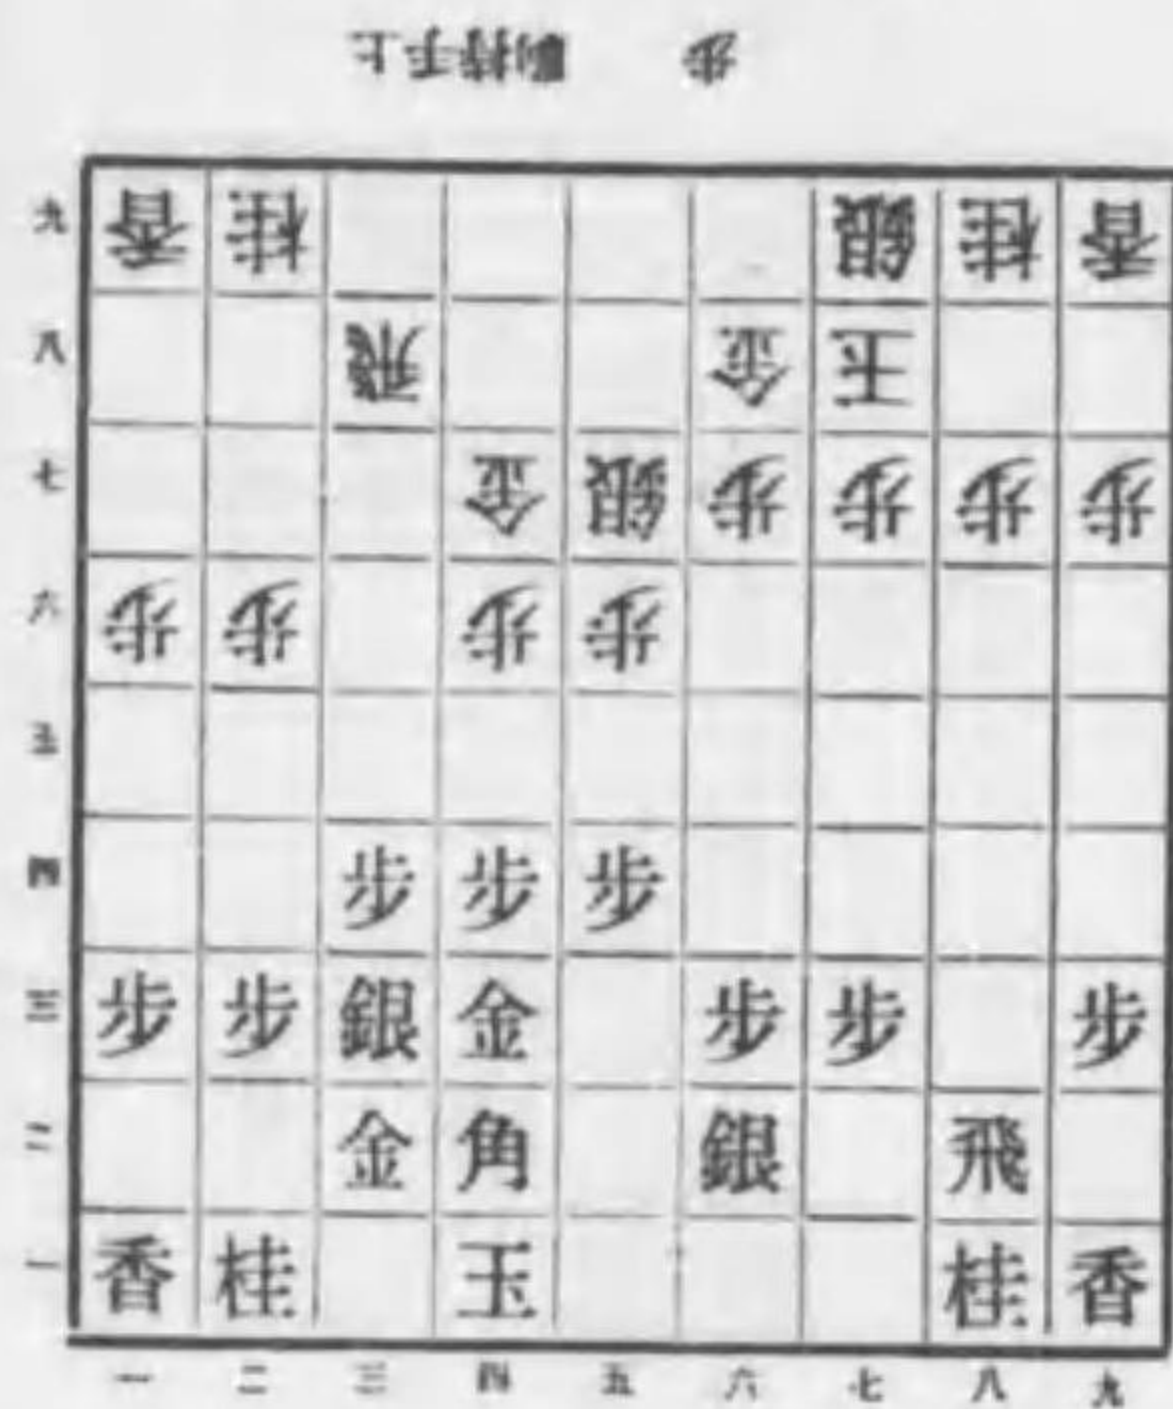 上手持駒 歩
九 香 桂 銀 桂 香
八 飛 金 玉
七 金 銀 歩 歩 歩 歩
六 歩 歩 歩 歩
五
四 歩 歩 歩
三 歩 歩 銀 金 歩 歩 歩
二 金 角 銀 飛
一 香 桂 玉 桂 香
一 二 三 四 五 六 七 八 九